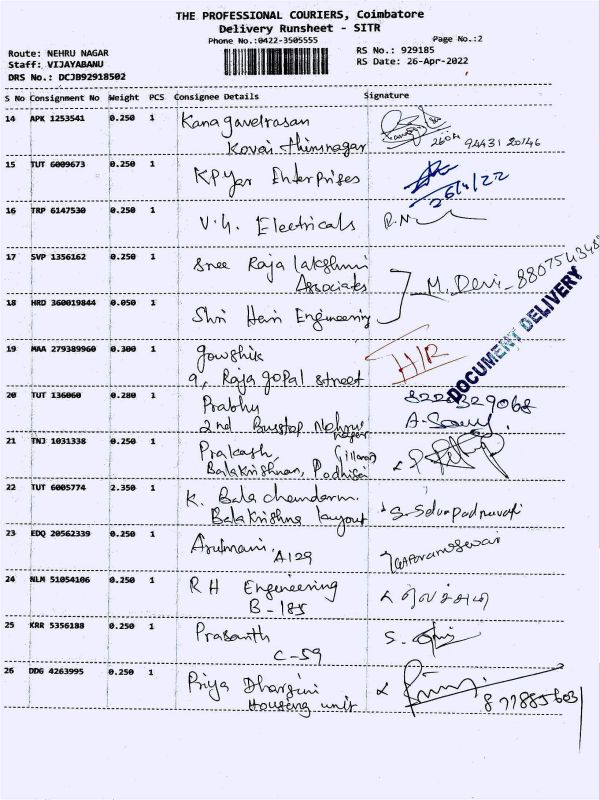 THE PROFESSIONAL COURIERS, Coimbatore
Delivery Runsheet - SITR
Phone No.:0422-3505555 Page No.:2
Route: NEHRU NAGAR RS No.: 929185
Staff: VIJAYABANU RS Date: 26-Apr-2022
DRS No.: DCJB92918502
S No Consignment No Weight PCS Consignee Details Signature
14 APK 1253541 0.250 1 Kanagavelrasan
Kovai thirunagar 2604 94431 20146
15 TUT 6009673 0.250 1 KPYar Enterprises
26/4/22
16 TRP 6147530 0.250 1 V.G. Electricals
17 SVP 1356162 0.250 1 Sree Raja lakshmi
Associates M. Devi - 8807543485
18 HRD 360019844 0.050 1 Shri Hari Engineering
19 MAA 279389960 0.300 1 Gowshik H/R
9, Raja gopal street DOCUMENT DELIVERY
20 TUT 136060 0.280 1 Prabhu 8220329068
2nd Busstop Nehru nagar
21 TNJ 1031338 0.250 1 Prakash
Balakrishnan,
22 TUT 6005774 2.350 1 K. Bala chandarm.
Balakrishna layout S. Selvapadmavathi
23 EDQ 20562339 0.250 1 Arulmani,
A129
24 NLM 51054106 0.250 1 R H Engineering
B-185
25 KRR 5356188 0.250 1 Prasanth
C-59
26 DDG 4263995 0.250 1 Priya Dharsini
Housing unit 877885603